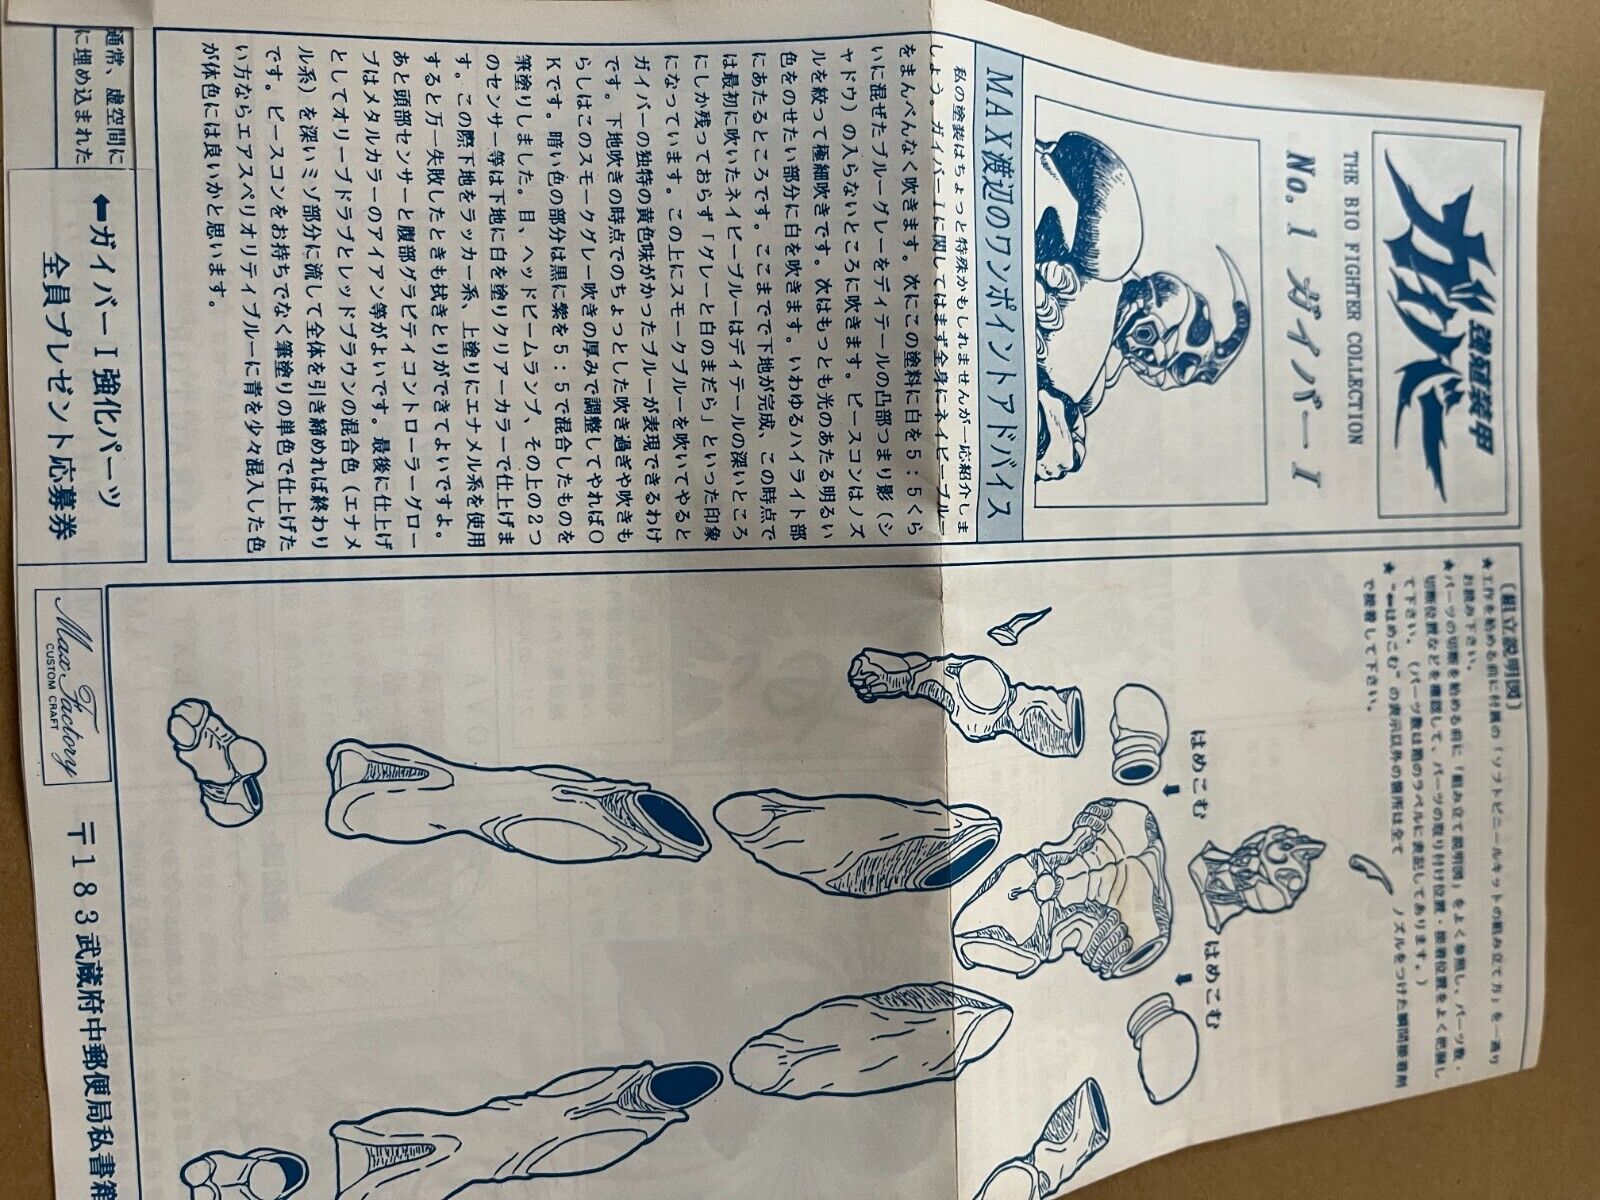 強殖装甲
ガイバー
THE BIO FIGHTER COLLECTION
No. 1 ガイバーI
MAX渡辺のワンポイントアドバイス
私の塗装はちょっと特殊かもしれませんが一応紹介しま
しょう。ガイバーIに関してはまず全身にネイビーブルー
をまんべんなく吹きます。次にこの塗料に白を5：5くら
いに混ぜたブルーグレーをディテールの凸部つまり影（シ
ャドウ）の入らないところに吹きます。ピースコンはノズ
ルを絞って極細吹きです。次はもっとも光のあたる明るい
色をのせたい部分に白を吹きます。いわゆるハイライト部
にあたるところです。ここまでで下地が完成、この時点で
は最初に吹いたネイビーブルーはディテールの深いところ
にしか残っておらず「グレーと白のまだら」といった印象
になっています。この上にスモークブルーを吹いてやると
ガイバーの独特の黄色味がかったブルーが表現できるわけ
です。下地吹きの時点でのちょっとした吹き過ぎや吹きも
らしはこのスモークグレー吹きの厚みで調整してやればO
Kです。暗い色の部分は黒に紫を5：5で混合したものを
筆塗りしました。目、ヘッドビームランプ、その上の2つ
のセンサー等は下地に白を塗りクリアーカラーで仕上げま
す。この際下地をラッカー系、上塗りにエナメル系を使用
すると万一失敗したときも拭きとりができてよいですよ。
あと頭部センサーと腹部グラビティコントローラーグロー
ブはメタルカラーのアイアン等がよいです。最後に仕上げ
としてオリーブドラブとレッドブラウンの混合色（エナメ
ル系）を深いミゾ部分に流して全体を引き締めれば終わり
です。ピースコンをお持ちでなく筆塗りの単色で仕上げた
い方ならエアスペリオリティブルーに青を少々混入した色
が体色には良いかと思います。
通常、虚空間に
に埋め込まれた
←ガイバーI強化パーツ
全員プレゼント応募券
〔組立説明図〕
★工作を始める前に付属の「ソフトビニールキットの組み立て方」を一通り
お読み下さい。
★パーツの切断を始める前に「組み立て説明図」をよく参照し、パーツ数・
切断位置などを確認して、パーツの取り付け位置・接着位置をよく把握し
て下さい。（パーツ数は箱のラベルに表記してあります。）
★"←はめこむ"の表示以外の箇所は全て ノズルをつけた瞬間接着剤
で接着して下さい。
はめこむ
はめこむ
Max Factory
CUSTOM CRAFT
〒183武蔵府中郵便局私書箱